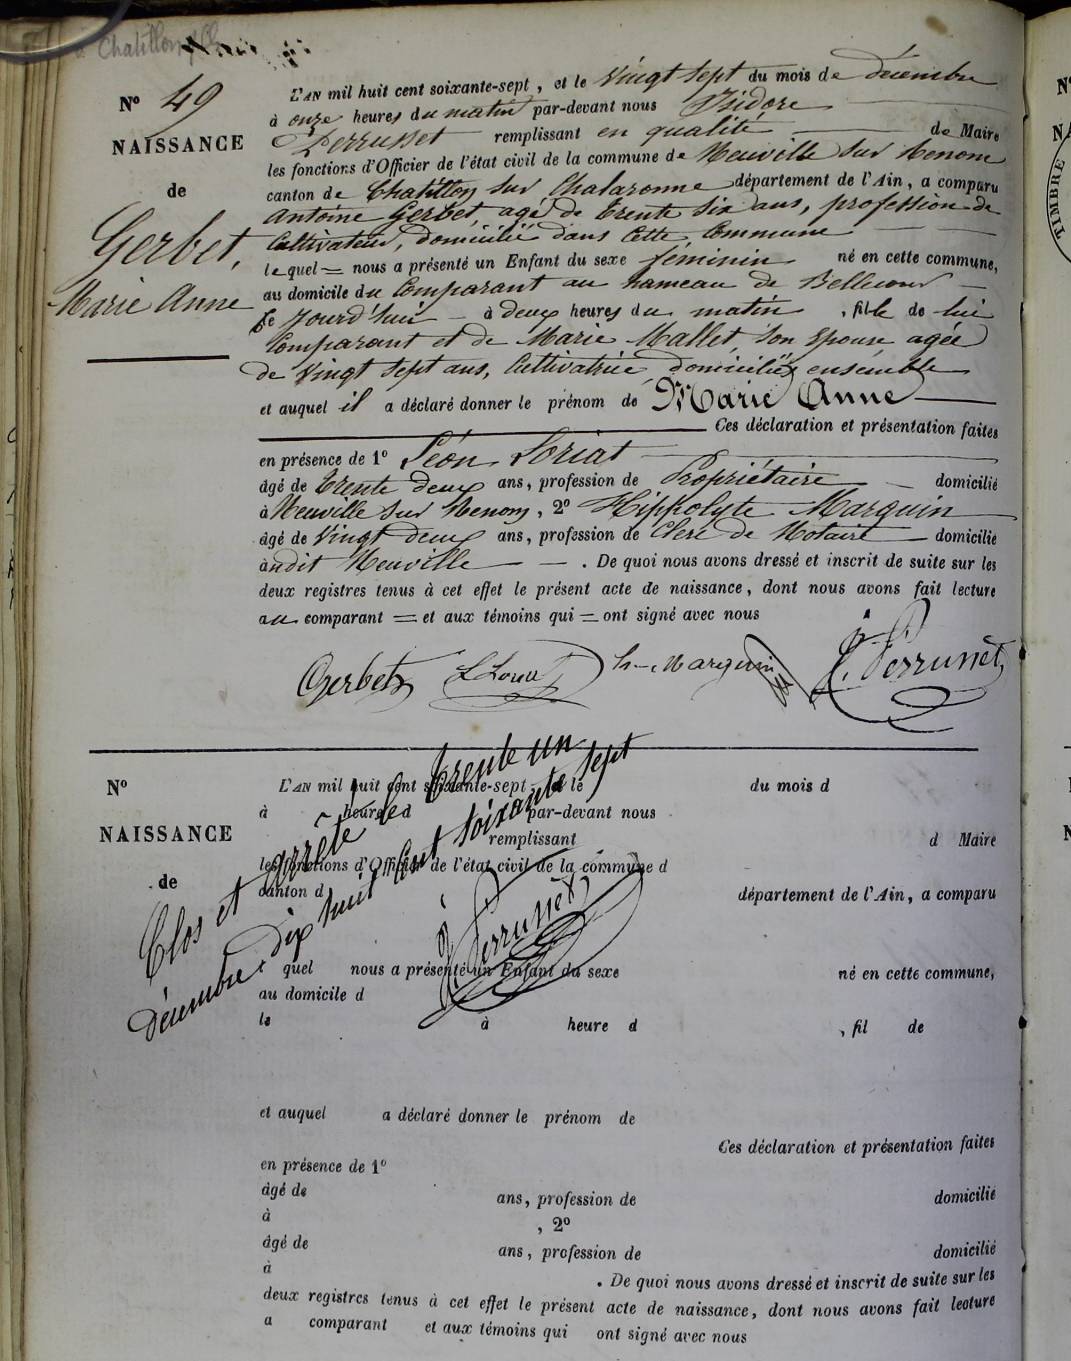 Chatillon s/Ch
N° 49
NAISSANCE
de
Gerbet,
Marie Anne
L'AN mil huit cent soixante-sept, et le vingt sept du mois de décembre
à onze heures du matin par-devant nous Isidore
Perrusset remplissant en qualité de Maire
les fonctions d'Officier de l'état civil de la commune de Neuville sur Renom
canton de Chatillon sur Chalaronne département de l'Ain, a comparu
Antoine Gerbet, agé de trente six ans, profession de
Cultivateur, domicilié dans cette Commune
lequel = nous a présenté un Enfant du sexe féminin né en cette commune,
au domicile du Comparant au hameau de Bellecour
Ce jourd'hui à deux heures du matin, fille de lui
Comparant et de Marie Mallet, son épouse agée
de vingt sept ans, Cultivatrice, domiciliés ensemble
et auquel il a déclaré donner le prénom de Marie Anne
Ces déclaration et présentation faites
en présence de 1° Léon Loriat
âgé de trente deux ans, profession de Propriétaire domicilié
à Neuville sur Renom, 2° Hippolyte Marguin
âgé de vingt deux ans, profession de Clerc de Notaire domicilié
audit Neuville . De quoi nous avons dressé et inscrit de suite sur les
deux registres tenus à cet effet le présent acte de naissance, dont nous avons fait lecture
au comparant = et aux témoins qui = ont signé avec nous
Gerbet L Loriat h. Marguin I. Perrusset
N°
NAISSANCE
de
L'AN mil huit cent soixante-sept, et le du mois d
à heure d par-devant nous
remplissant d Maire
les fonctions d'Officier de l'état civil de la commune d
canton d département de l'Ain, a comparu
Clos et arrêté le trente un
décembre dix huit cent soixante sept
I. Perrusset
quel nous a présenté un Enfant du sexe né en cette commune,
au domicile d
le à heure d , fil de
et auquel a déclaré donner le prénom de
Ces déclaration et présentation faites
en présence de 1°
âgé de ans, profession de domicilié
à , 2°
âgé de ans, profession de domicilié
à . De quoi nous avons dressé et inscrit de suite sur les
deux registres tenus à cet effet le présent acte de naissance, dont nous avons fait lecture
a comparant et aux témoins qui ont signé avec nous
TIMBRE